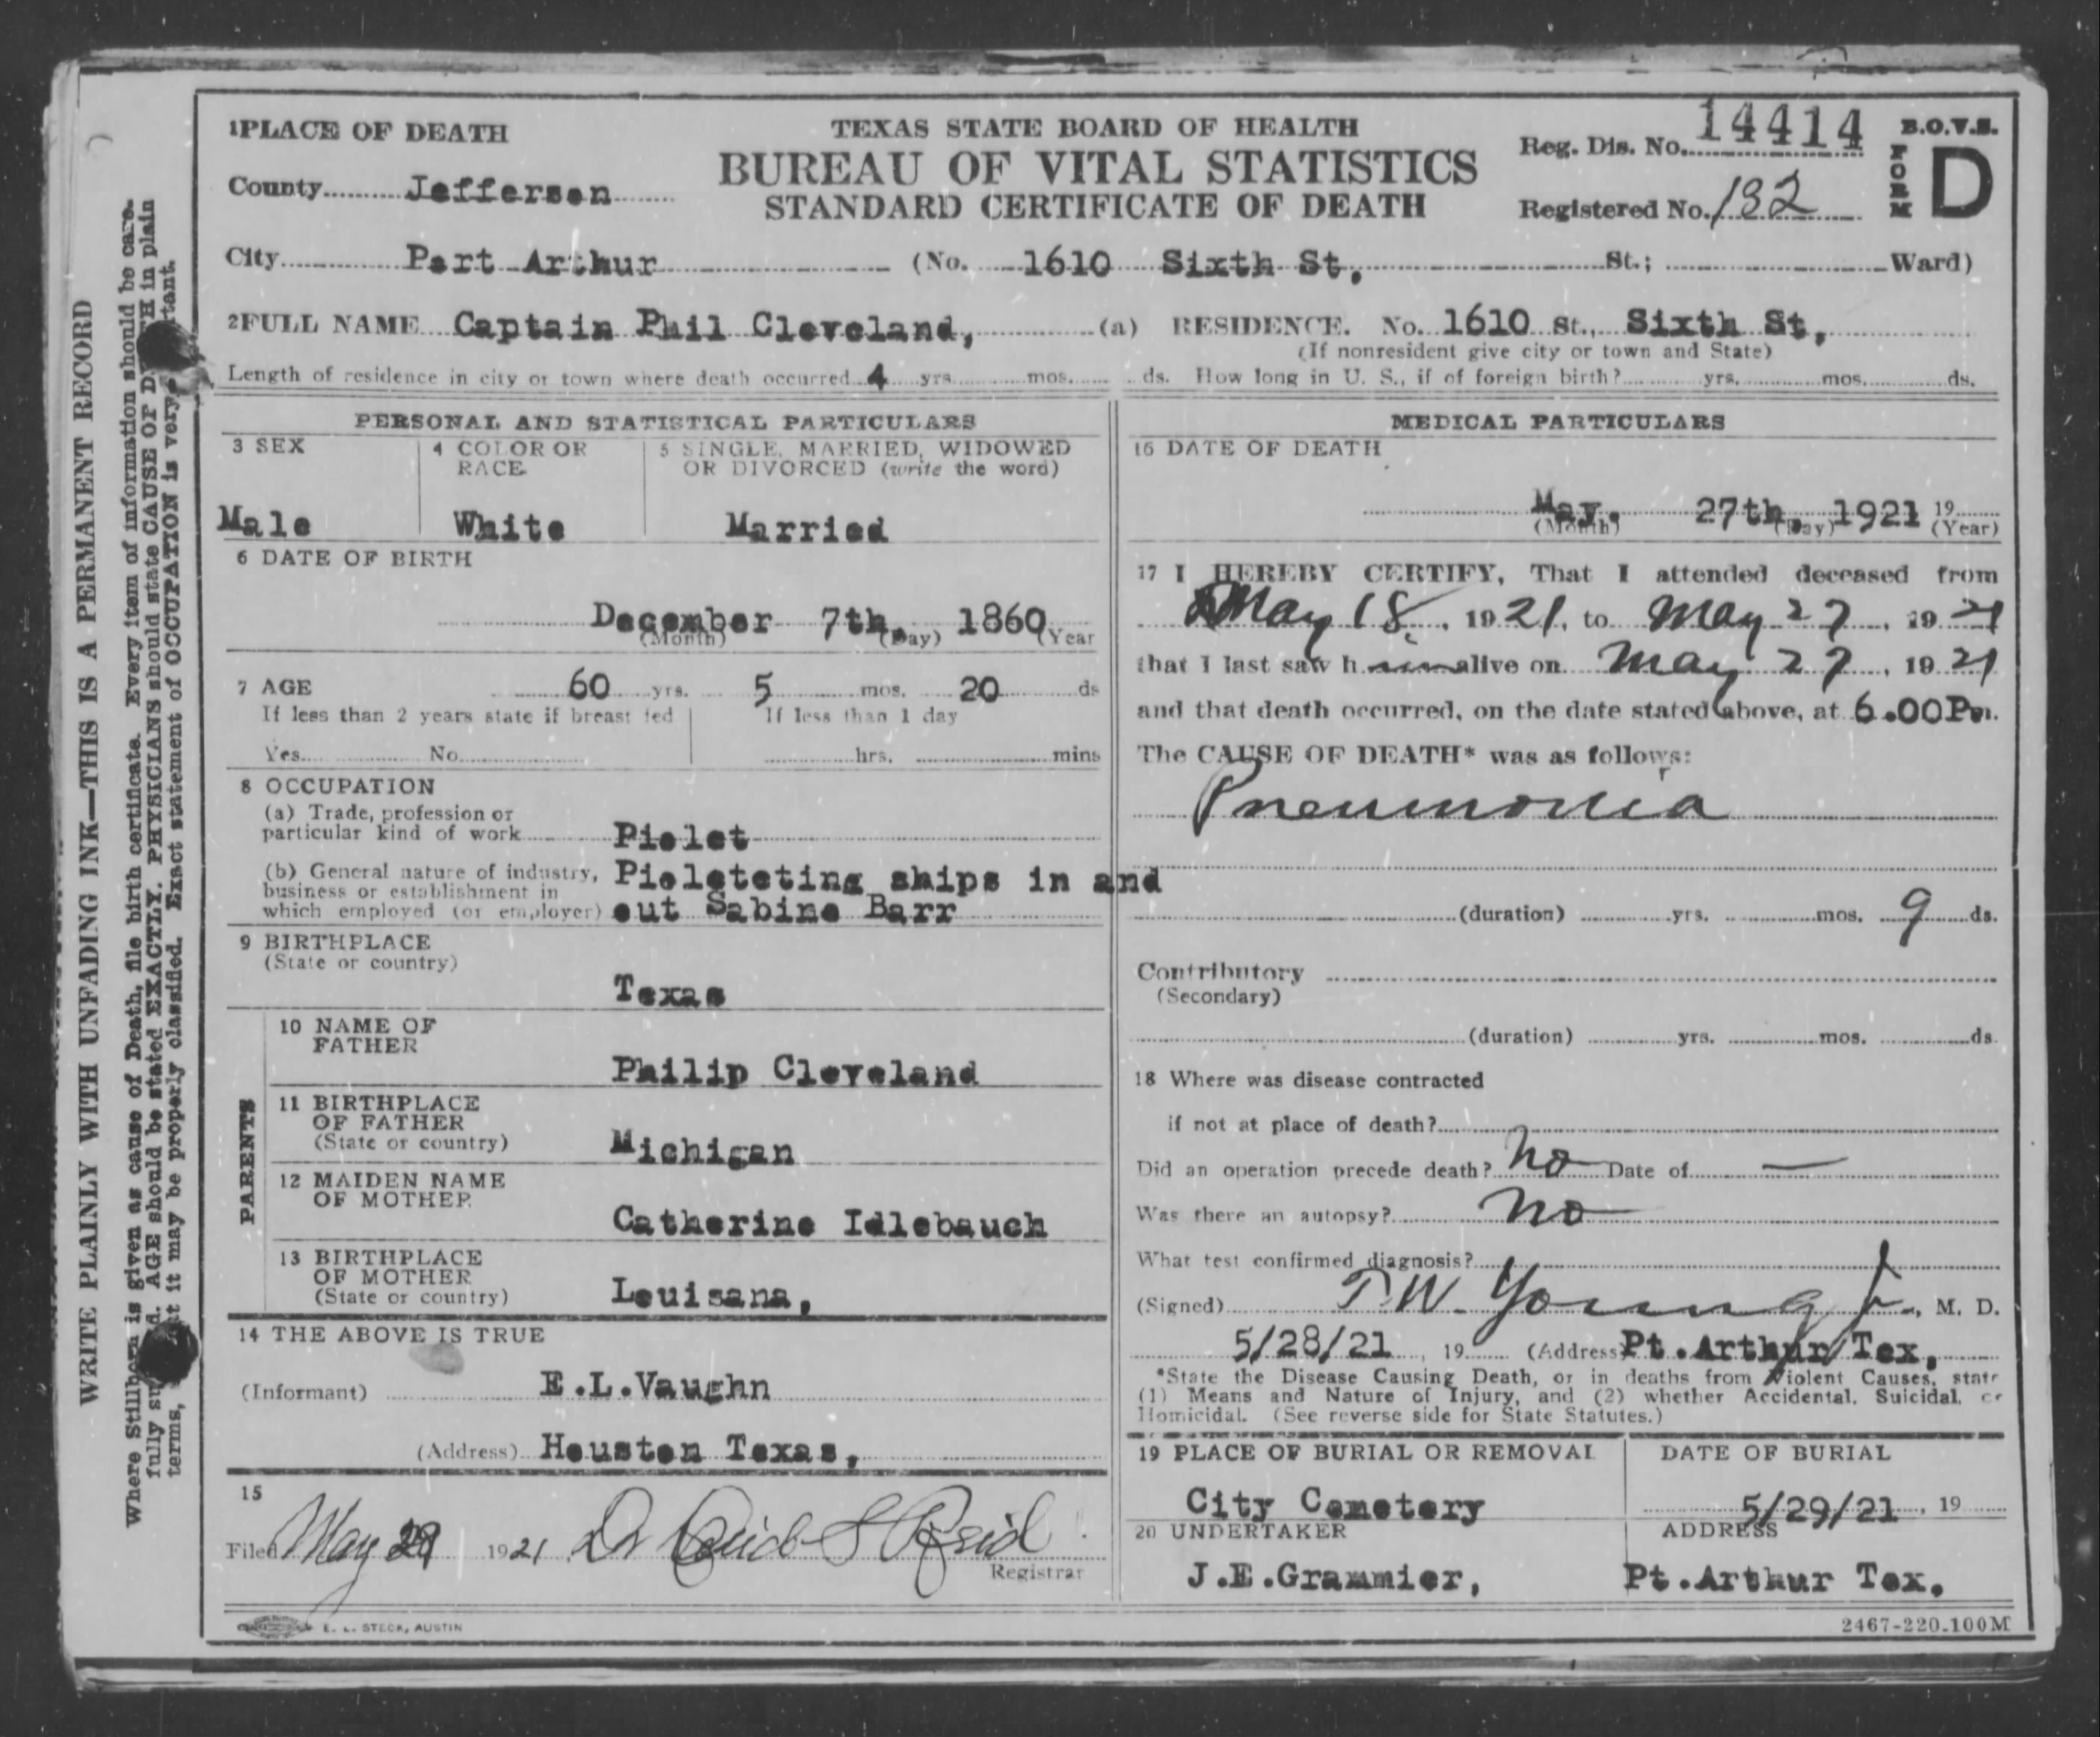 WRITE PLAINLY WITH UNFADING INK—THIS IS A PERMANENT RECORD
Where Stillborn is given as cause of Death, file birth certificate. Every item of information should be care-
fully su d. AGE should be stated EXACTLY. PHYSICIANS should state CAUSE OF D TH in plain
terms, t it may be properly classified. Exact statement of OCCUPATION is very rtant.
1PLACE OF DEATH
TEXAS STATE BOARD OF HEALTH
BUREAU OF VITAL STATISTICS
STANDARD CERTIFICATE OF DEATH
Reg. Dis. No. 14414
Registered No. 132
B.O.V.S.
FORM D
County Jefferson
City Port Arthur (No. 1610 Sixth St, St.; Ward)
2FULL NAME Captain Phil Cleveland, (a) RESIDENCE. No. 1610 St., Sixth St,
(If nonresident give city or town and State)
Length of residence in city or town where death occurred 4 yrs. mos. ds. How long in U. S., if of foreign birth? yrs. mos. ds.
PERSONAL AND STATISTICAL PARTICULARS
3 SEX
Male
4 COLOR OR RACE
White
5 SINGLE, MARRIED, WIDOWED
OR DIVORCED (write the word)
Married
6 DATE OF BIRTH
December 7th, 1860
(Month) (Day) (Year
7 AGE 60 yrs. 5 mos. 20 ds
If less than 2 years state if breast fed If less than 1 day
Yes No hrs. mins
8 OCCUPATION
(a) Trade, profession or
particular kind of work Piolot
(b) General nature of industry,
business or establishment in
which employed (or employer)
Pioloteting ships in and
out Sabine Barr
9 BIRTHPLACE
(State or country)
Texas
PARENTS
10 NAME OF
FATHER
Philip Cleveland
11 BIRTHPLACE
OF FATHER
(State or country) Michigan
12 MAIDEN NAME
OF MOTHER
Catherine Idlebauch
13 BIRTHPLACE
OF MOTHER
(State or country) Louisana,
14 THE ABOVE IS TRUE
(Informant) E.L.Vaughn
(Address) Houston Texas,
15
Filed May 29 1921
Registrar
E. L. STECK, AUSTIN
MEDICAL PARTICULARS
16 DATE OF DEATH
May. 27th, 1921 19
(Month) (Day) (Year)
17 I HEREBY CERTIFY, That I attended deceased from
May 18, 1921, to May 27, 1921
that I last saw h im alive on May 27, 1921
and that death occurred, on the date stated above, at 6.00Pm.
The CAUSE OF DEATH* was as follows:
Pneumonia
(duration) yrs. mos. 9 ds.
Contributory
(Secondary)
(duration) yrs. mos. ds.
18 Where was disease contracted
if not at place of death?
Did an operation precede death? No Date of —
Was there an autopsy? No
What test confirmed diagnosis?
(Signed) T.W. Young Jr, M. D.
5/28/21, 19 (Address) Pt.Arthur Tex,
*State the Disease Causing Death, or in deaths from Violent Causes, state
(1) Means and Nature of Injury, and (2) whether Accidental, Suicidal, or
Homicidal. (See reverse side for State Statutes.)
19 PLACE OF BURIAL OR REMOVAL
City Cemetery
DATE OF BURIAL
5/29/21, 19
20 UNDERTAKER
J.E.Grammier,
ADDRESS
Pt.Arthur Tex.
2467-220-100M